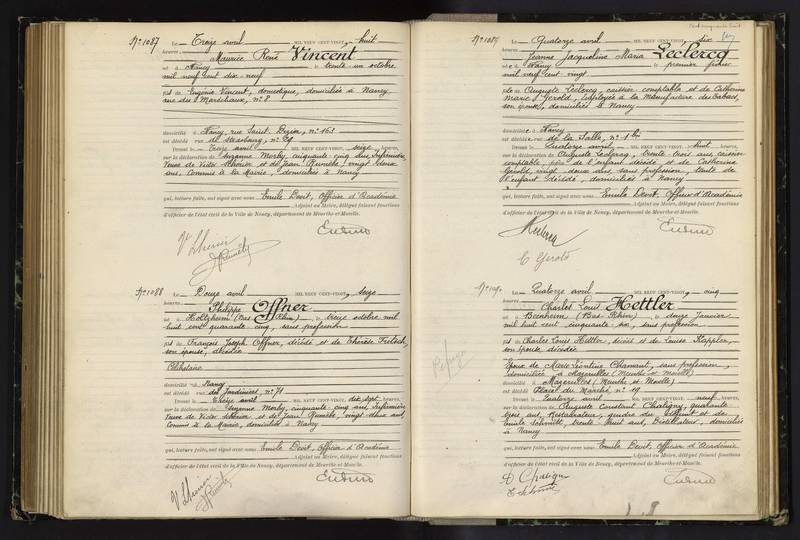 No 1087
Le Treize avril MIL NEUF CENT-VINGT, huit
heures
Maurice René Vincent
né à Nancy le trente un octobre
mil neuf cent dix neuf
fils de Eugénie Vincent, domestique, domiciliée à Nancy
rue des Maréchaux, no 8
domicilié à Nancy, rue Saint Dizier, no 163
est décédé rue de Strasbourg, no
Dressé le Treize avril MIL NEUF CENT-VINGT, seize heures,
sur la déclaration de Suzanne Morby, cinquante cinq ans, Infirmière
Veuve de Victor Lhernier et de Jean Rumilhe, vingt deux
ans, Commis à la Mairie, domiciliés à Nancy
qui, lecture faite, ont signé avec nous Emile Devit, Officier d'Académie
Adjoint au Maire, délégué faisant fonctions
d'officier de l'état civil de la Ville de Nancy, département de Meurthe et Moselle.
No 1088
Le Douze avril MIL NEUF CENT-VINGT, seize
heures
Philippe Offner
né à Holtzheim (Bas Rhin) le treize octobre mil
huit cent quarante cinq, sans profession
fils de François Joseph Offner, décédé et de Thérèse Fritsch,
son épouse, décédée
Célibataire
domicilié à Nancy
est décédé des Jardiniers, no 71
Dressé le Treize avril MIL NEUF CENT-VINGT, dix sept heures,
sur la déclaration de Suzanne Morby, cinquante cinq ans, Infirmière
Veuve de Victor Lhernier et de Jean Rumilhe, vingt deux ans
Commis à la Mairie, domiciliés à Nancy
qui, lecture faite, ont signé avec nous Emile Devit, Officier d'Académie
Adjoint au Maire, délégué faisant fonctions
d'officier de l'état civil de la Ville de Nancy, département de Meurthe et Moselle.
No 1089
Le Quatorze avril MIL NEUF CENT-VINGT, six
heures
Jeanne Jacqueline Maria Leclercq
née à Nancy le premier février
mil neuf cent vingt
fille de Auguste Leclercq, caissier comptable et de Catherine
Marie Gérold, employée à la manufacture des Tabacs,
son épouse, domiciliés à Nancy
domiciliée à Nancy
est décédée rue de la Salle, no 1 bis
Dressé le Quatorze avril MIL NEUF CENT-VINGT, huit heures,
sur la déclaration de Auguste Leclercq, trente trois ans, caissier
comptable, père de l'enfant décédé, et de Catherine
Gérold, vingt deux ans, sans profession, tante de
l'enfant décédé, domiciliés à Nancy
qui, lecture faite, ont signé avec nous Emile Devit, Officier d'Académie
Adjoint au Maire, délégué faisant fonctions
d'officier de l'état civil de la Ville de Nancy, département de Meurthe et Moselle.
C Gerold
No 1090
Le Quatorze avril MIL NEUF CENT-VINGT, cinq
heures
Charles Louis Hettler
né à Benheim (Bas-Rhin) le douze Janvier
mil huit cent cinquante six, sans profession
fils de Charles Louis Hettler, décédé et de Louise Kappler,
son épouse décédée
Epoux de Marie Léontine Chamant, sans profession,
domiciliée à Mazerulles (Meurthe et Moselle)
domicilié à Mazerulles (Meurthe et Moselle)
est décédé Place du Marché, no 19
Dressé le Quatorze avril MIL NEUF CENT-VINGT, neuf heures,
sur la déclaration de Auguste Constant Chaligny, quarante
trois ans, Restaurateur, gendre du défunt et de
Emile Schmitt, trente huit ans, Distillateur, domiciliés
à Nancy
qui, lecture faite, ont signé avec nous Emile Devit, Officier d'Académie
Adjoint au Maire, délégué faisant fonctions
d'officier de l'état civil de la Ville de Nancy, département de Meurthe et Moselle.